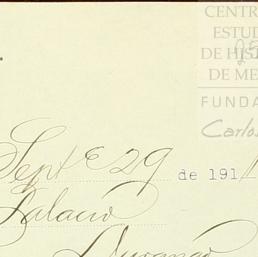 CENTR
ESTUD
DE HIS
DE ME
FUNDA
Carlos
Sept e 29 de 191
Palacio
Durango